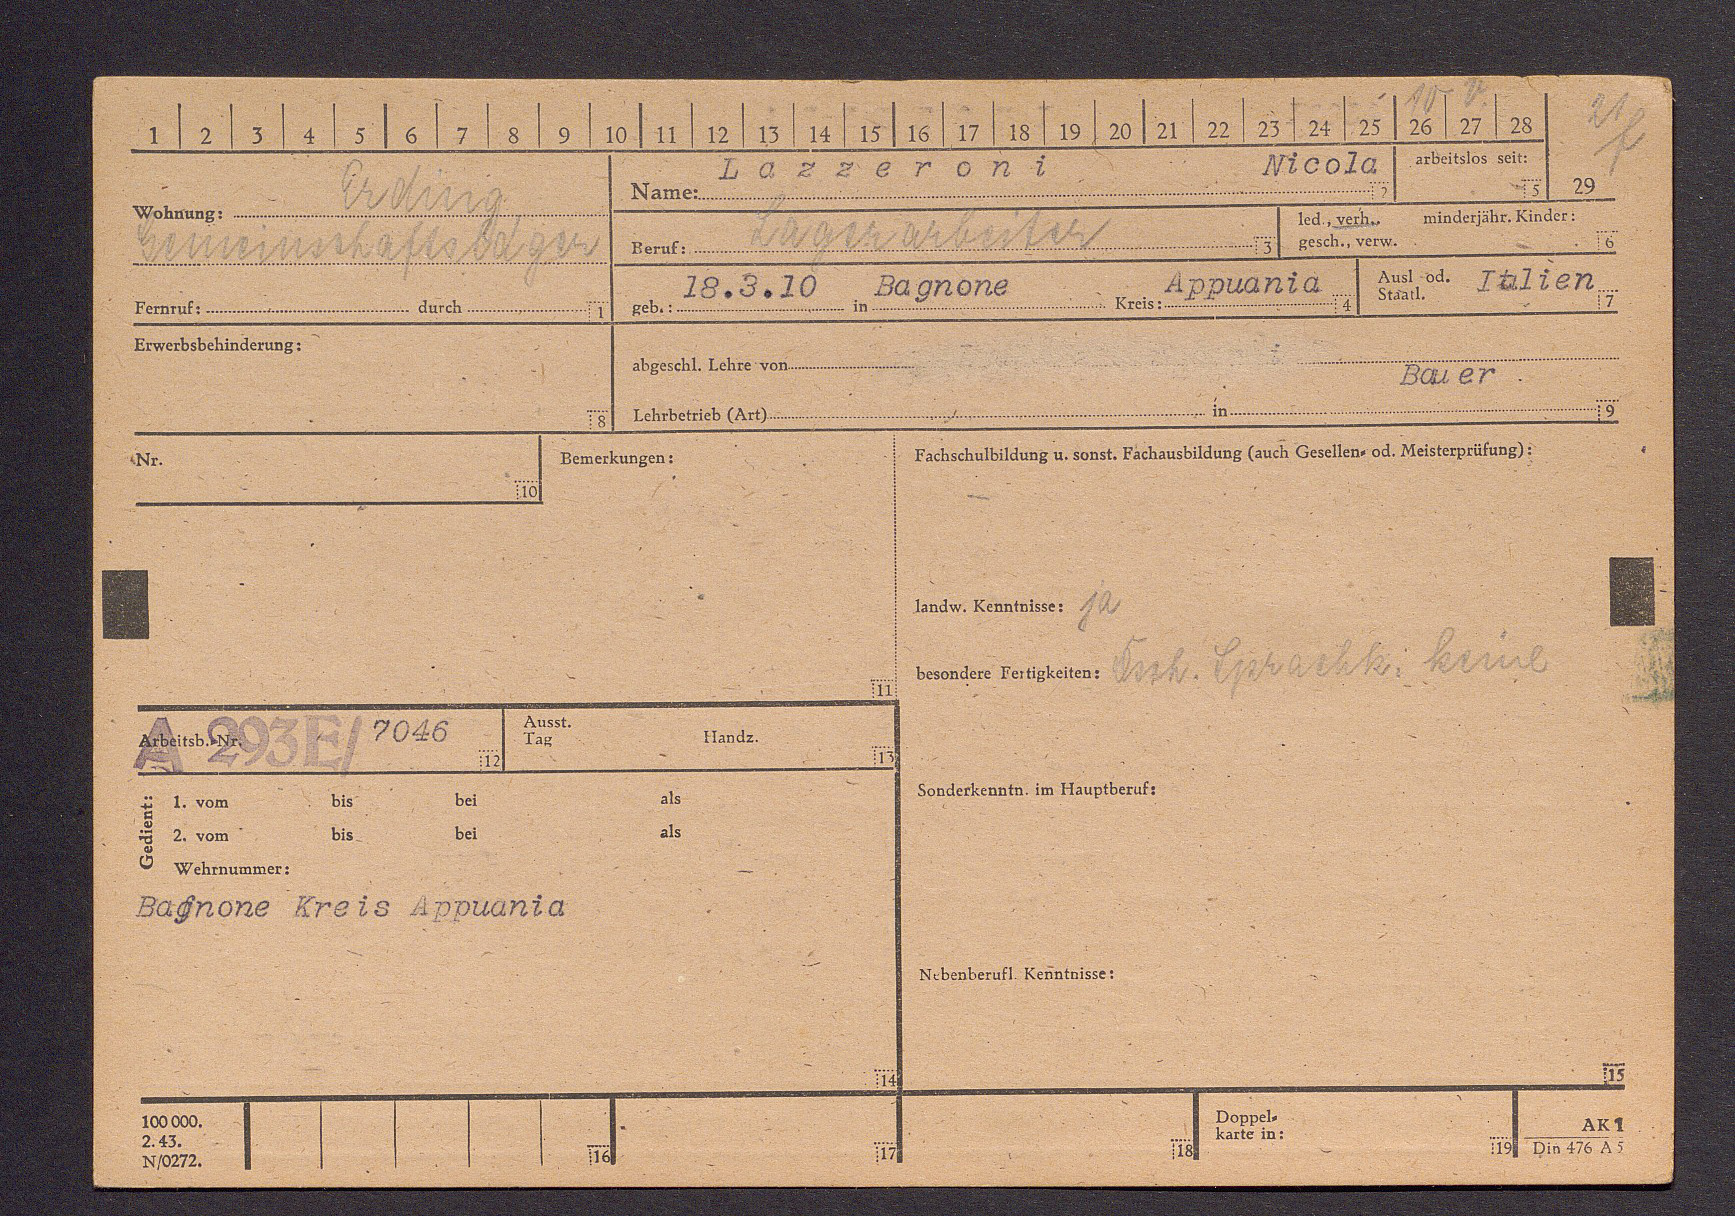 1 2 3 4 5 6 7 8 9 10 11 12 13 14 15 16 17 18 19 20 21 22 23 24 25 26 27 28
10 v. 21
29
Wohnung: Erding,
Gemeinschaftslager
Fernruf: durch 1
Name: Lazzeroni Nicola 2
arbeitslos seit: 5
Beruf: Lagerarbeiter 3
led., verh., minderjähr. Kinder:
gesch., verw. – 6
geb.: 18.3.10 in Bagnone Kreis: Appuania 4
Ausl od. Staatl. Italien 7
Erwerbsbehinderung:
8
abgeschl. Lehre von
Bauer
Lehrbetrieb (Art) in 9
Nr.
10
Bemerkungen:
11
Fachschulbildung u. sonst. Fachausbildung (auch Gesellen- od. Meisterprüfung):
–
landw. Kenntnisse: ja
besondere Fertigkeiten: Dtsch. Sprachk: keine
Arbeitsb.-Nr. A 293E/ 7046 12
Ausst. Tag Handz. 13
Gedient:
1. vom bis bei als
2. vom bis bei als
Wehrnummer:
Bagnone Kreis Appuania
14
Sonderkenntn. im Hauptberuf:
Nebenberufl. Kenntnisse:
15
100 000.
2. 43.
N/0272.
16 17 18
Doppel-
karte in: 19
AK 1
Din 476 A 5